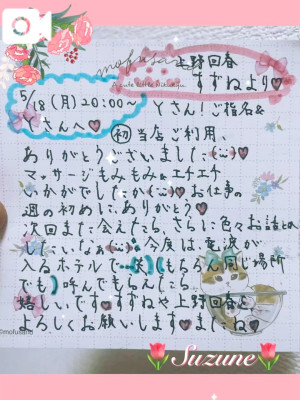 mofusand
上野回春
すずねより♥
A cute little Rikugyu
5/18(月)20:00〜
Yさんへ♥
Yさん!ご指名&
初 当店ご利用、
ありがとうございました(^^)♥
マッサージもみもみ&エチエチ
いかがでしたか(^^)♥お仕事の
週の初めに、ありがとう♥
次回また会えたら、さらに色々お話とか
したいなぁ(^^)♥今度は、電波が
入るホテルで(笑)(もちろん同じ場所
でも)呼んでもらえたら
嬉しいです♥すずねや上野回春を
よろしくお願いします♥またね♥
©mofusand
Suzune